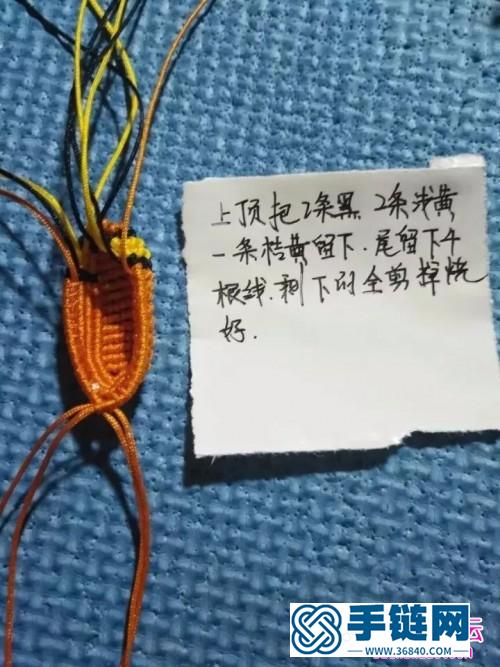 上顶把2条黑 2条浅黄
一条桔黄留下.尾留下4
根线.剩下的全剪掉烧
好.
手链网
www.36840.com